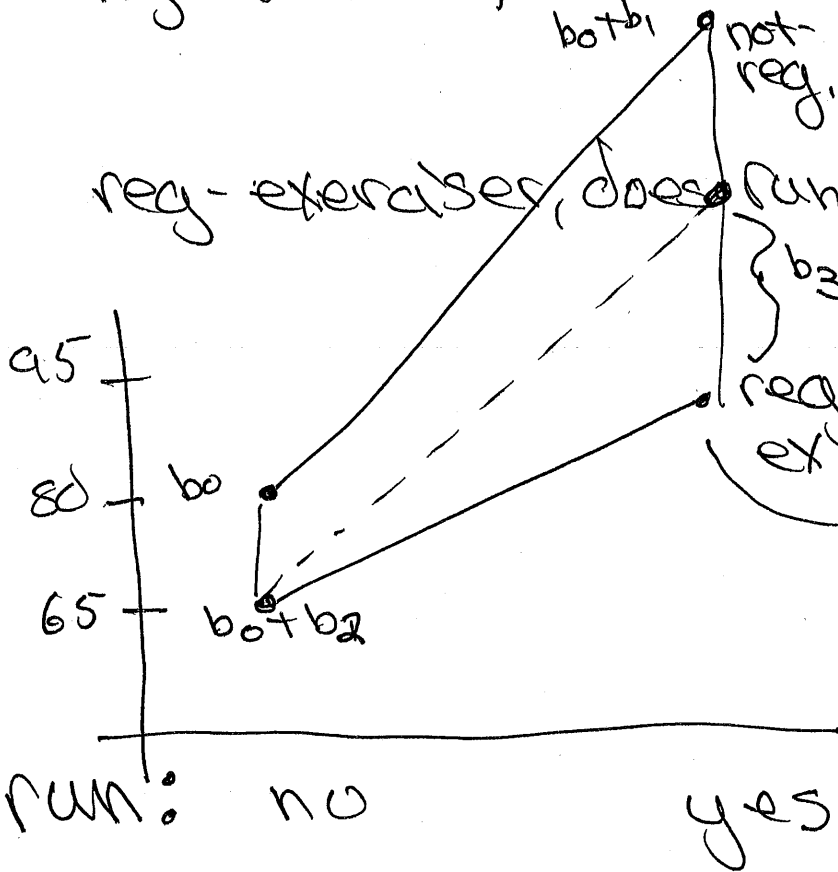 b0+b1 not-
reg.
reg-exerciser, does run
b3
95
reg
ex
80 b0
65 b0+b2
run: no yes